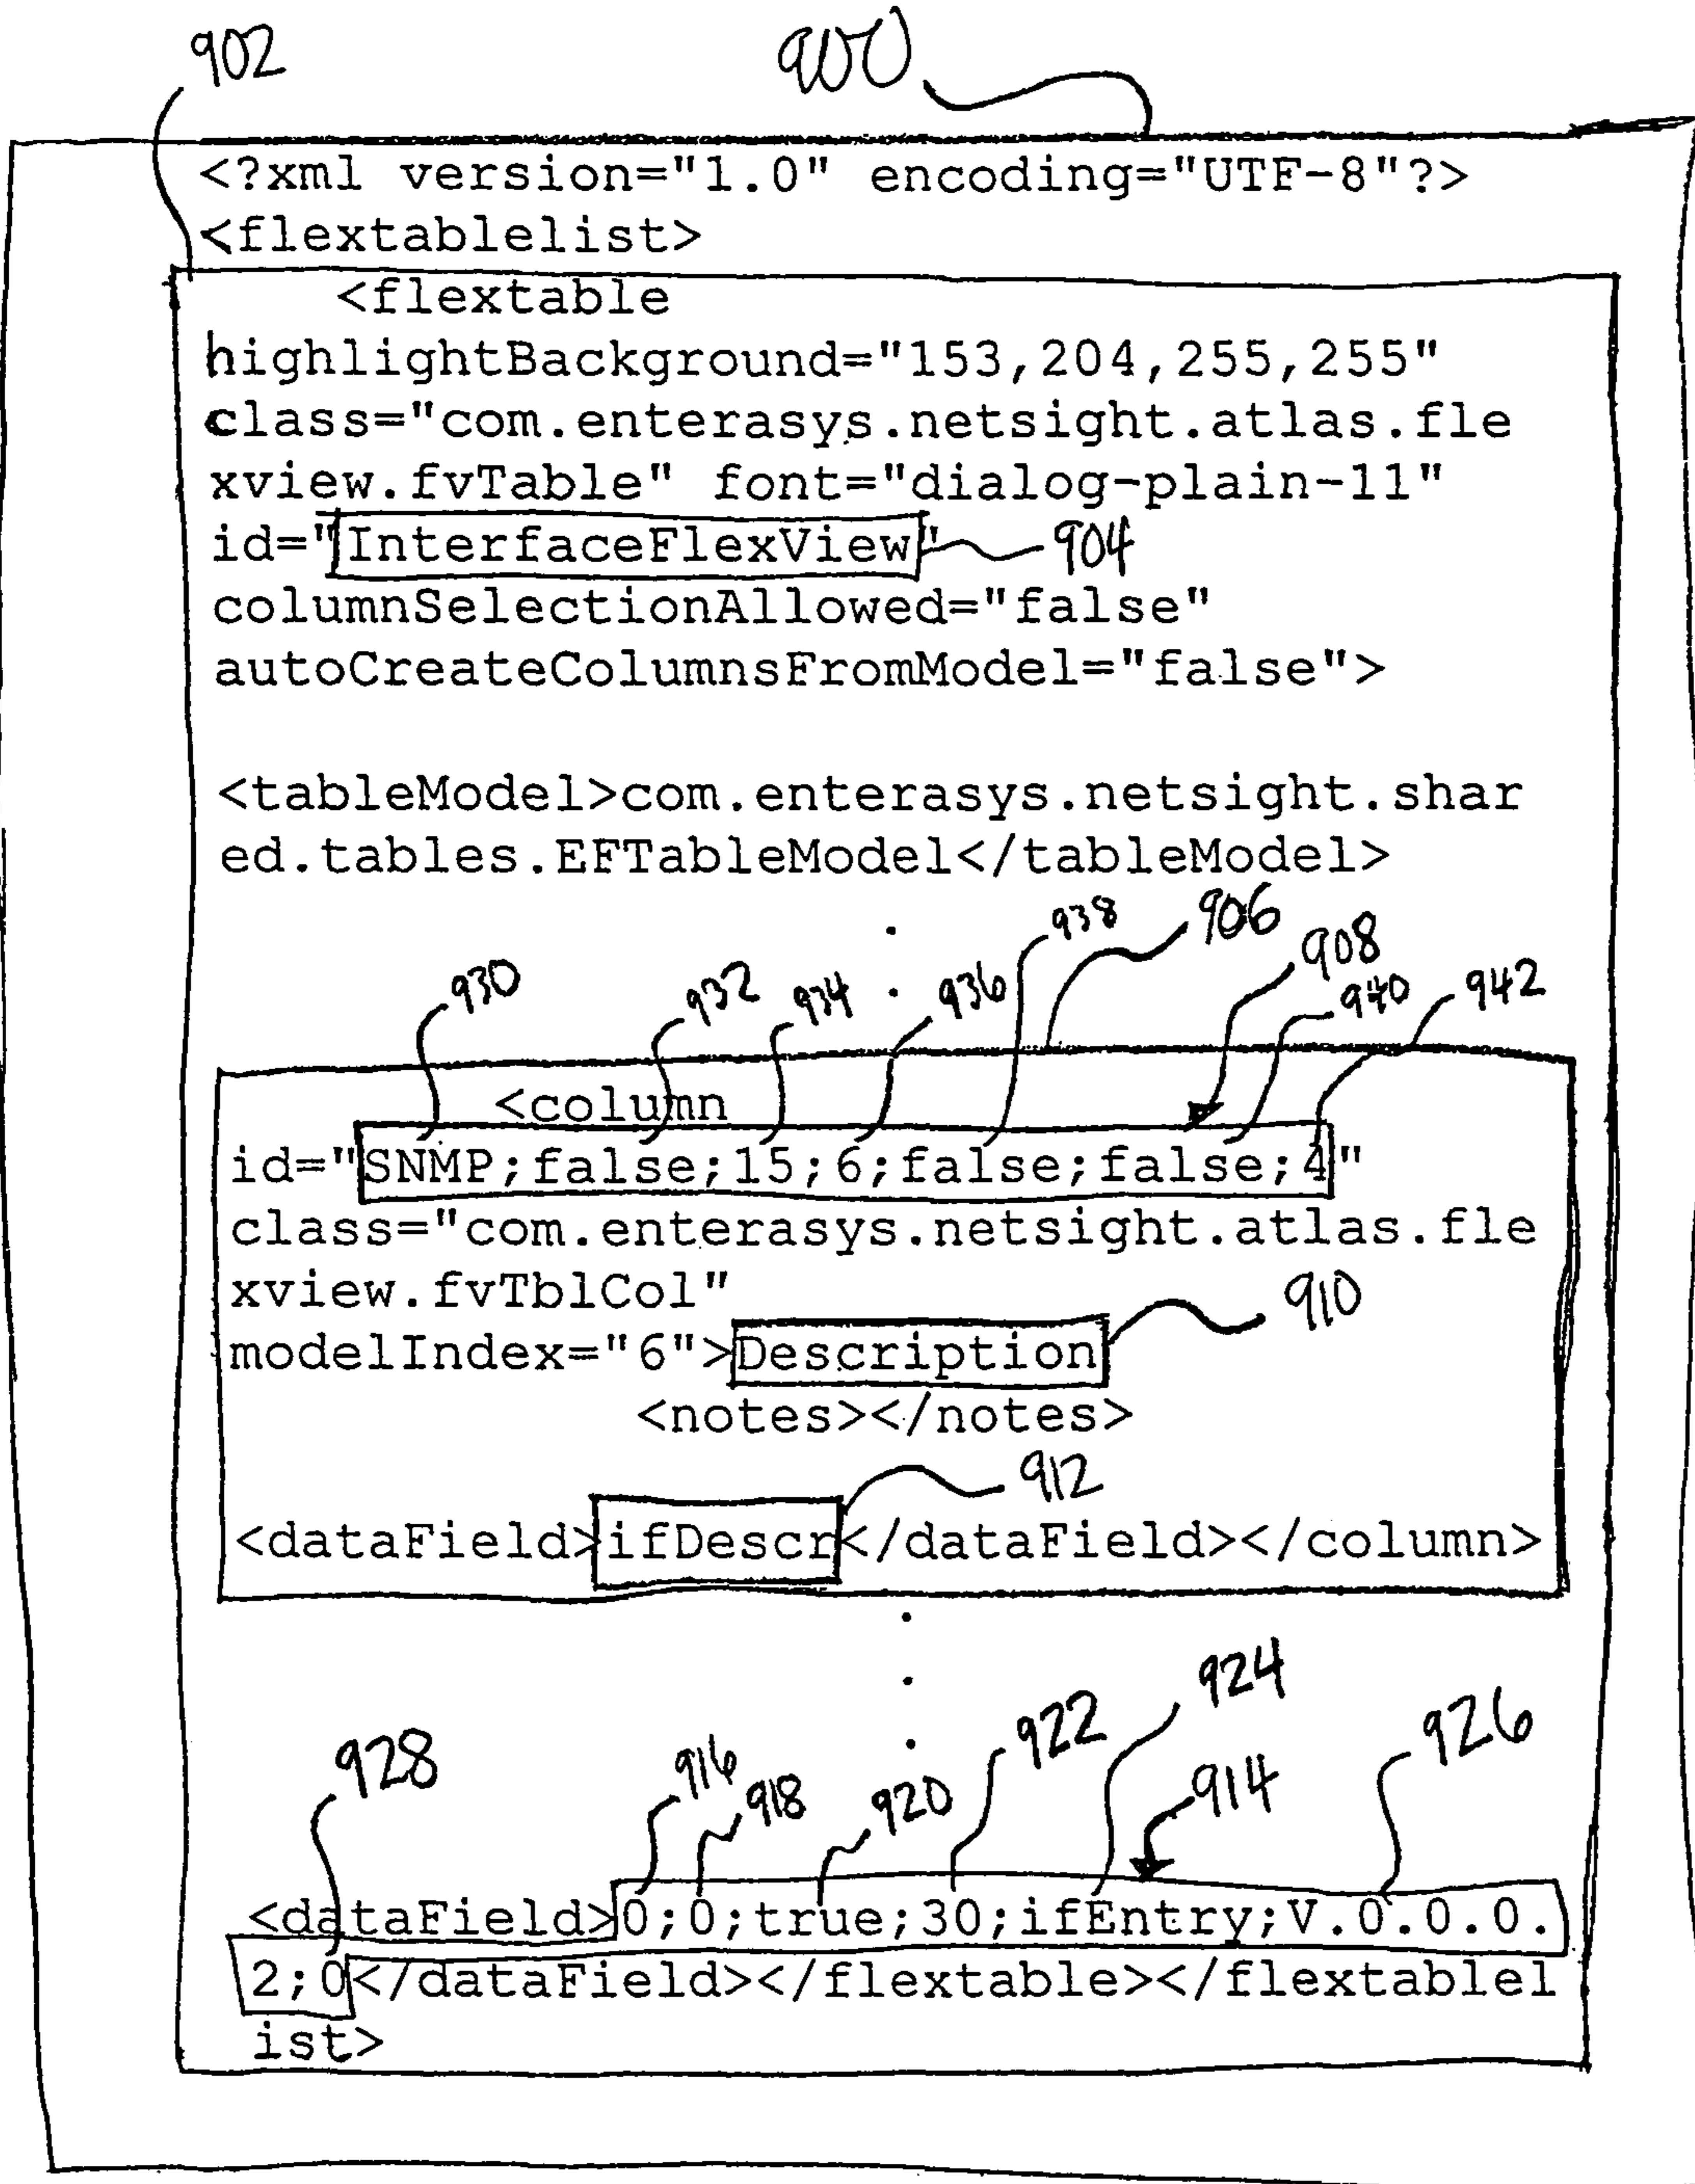 902 900
<?xml version="1.0" encoding="UTF-8"?>
<flextablelist>
<flextable
highlightBackground="153,204,255,255"
class="com.enterasys.netsight.atlas.fle
xview.fvTable" font="dialog-plain-11"
id="InterfaceFlexView" 904
columnSelectionAllowed="false"
autoCreateColumnsFromModel="false">
<tableModel>com.enterasys.netsight.shar
ed.tables.EFTableModel</tableModel>
938 906 908
930 932 934 936 940 942
<column
id="SNMP;false;15;6;false;false;4"
class="com.enterasys.netsight.atlas.fle
xview.fvTblCol" 910
modelIndex="6">Description
<notes></notes>
912
<dataField>ifDescr</dataField></column>
924
928 916 918 920 922 914 926
<dataField>0;0;true;30;ifEntry;V.0.0.0.
2;0</dataField></flextable></flextablel
ist>